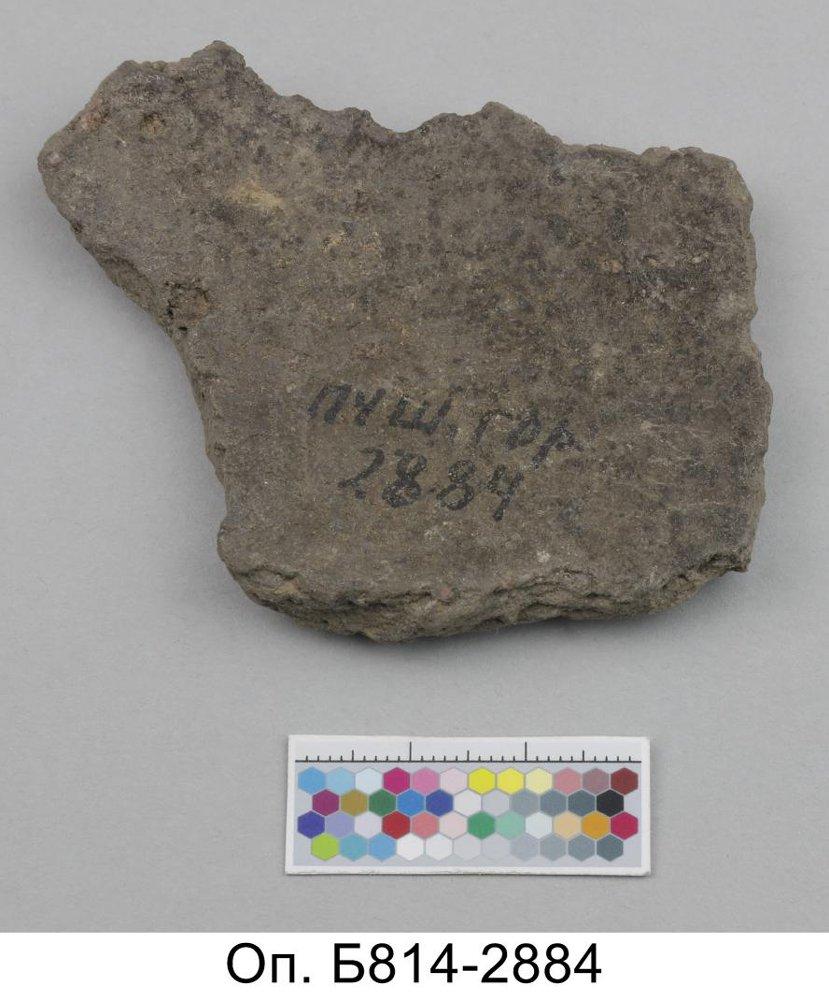 ПУШ. ГОР
2884
Оп. Б814-2884